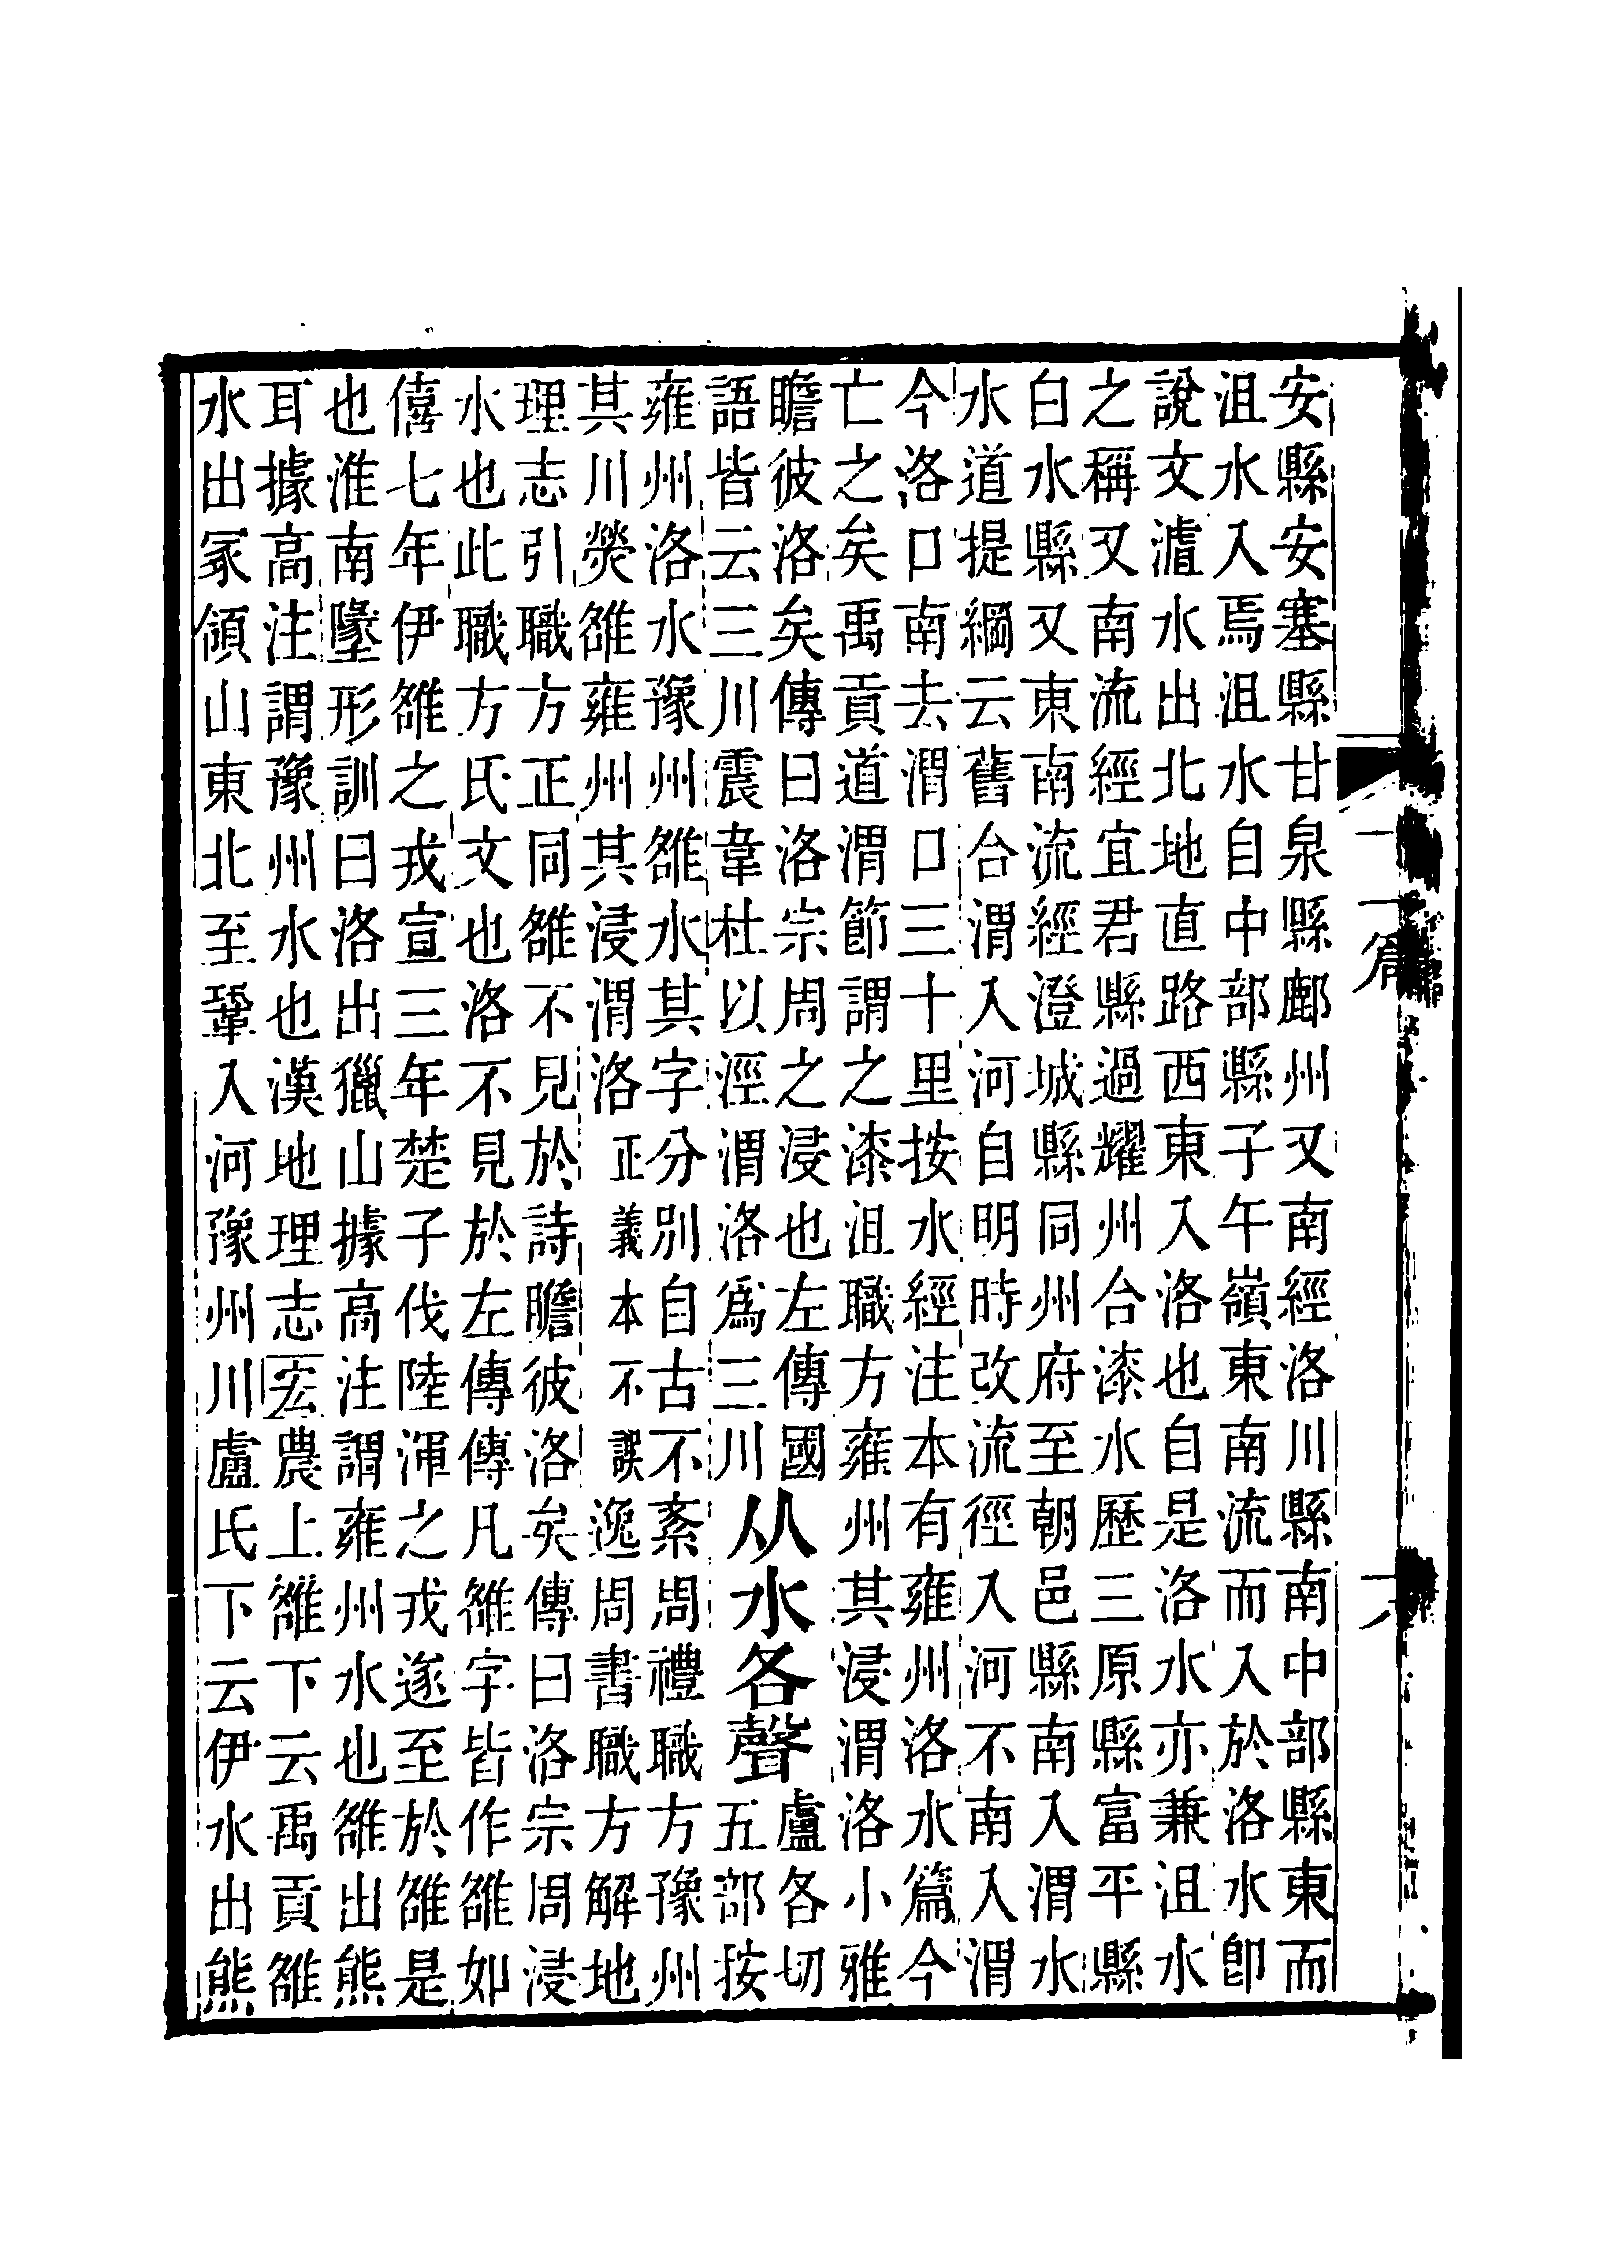 安縣安塞縣甘泉縣鄜州又南經洛川縣南中部縣東而
沮水入焉沮水自中部縣子午嶺東南流而入於洛水卽
說文水出北地直路西東入洛也自是洛水亦兼沮水
之稱又南流經宜君縣過耀州合漆水歷三原縣富平縣
白水縣又東南流經澄城縣同州府至朝邑縣南入渭水
水道提綱云舊合渭入河自明時改流徑入河不南入渭
今洛口南去渭口三十里按水經注本有雍州洛水篇今
亡之矣禹貢道渭節謂之漆沮職方雍州其浸渭洛小雅
瞻彼洛矣傳曰洛宗周之浸也左傳國
語皆云三川震韋杜以涇渭洛爲三川
从水各聲
盧各切
五部按
雍州洛水豫州雒水其字分別自古不紊周禮職方豫州
其川熒雒雍州其浸渭洛正義本不誤逸周書職方解地
理志引職方正同雒不見於詩瞻彼洛矣傳曰洛宗周浸
水也此職方氏文也洛不見於左傳傳凡雒字皆作雒如
僖七年伊雒之戎宣三年楚子伐陸渾之戎遂至於雒是
也淮南墬形訓曰洛出獵山據高注謂雍州水也雒出熊
耳據高注謂豫州水也漢地理志宏農上雒下云禹貢雒
水出冢領山東北至鞏入河豫州川盧氏下云伊水出熊